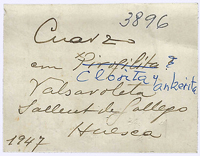 3896
Cuarzo
em Pirofilita
Clorita y ankerita
Valsaroleta
Sallent de Gallego
Huesca
1947